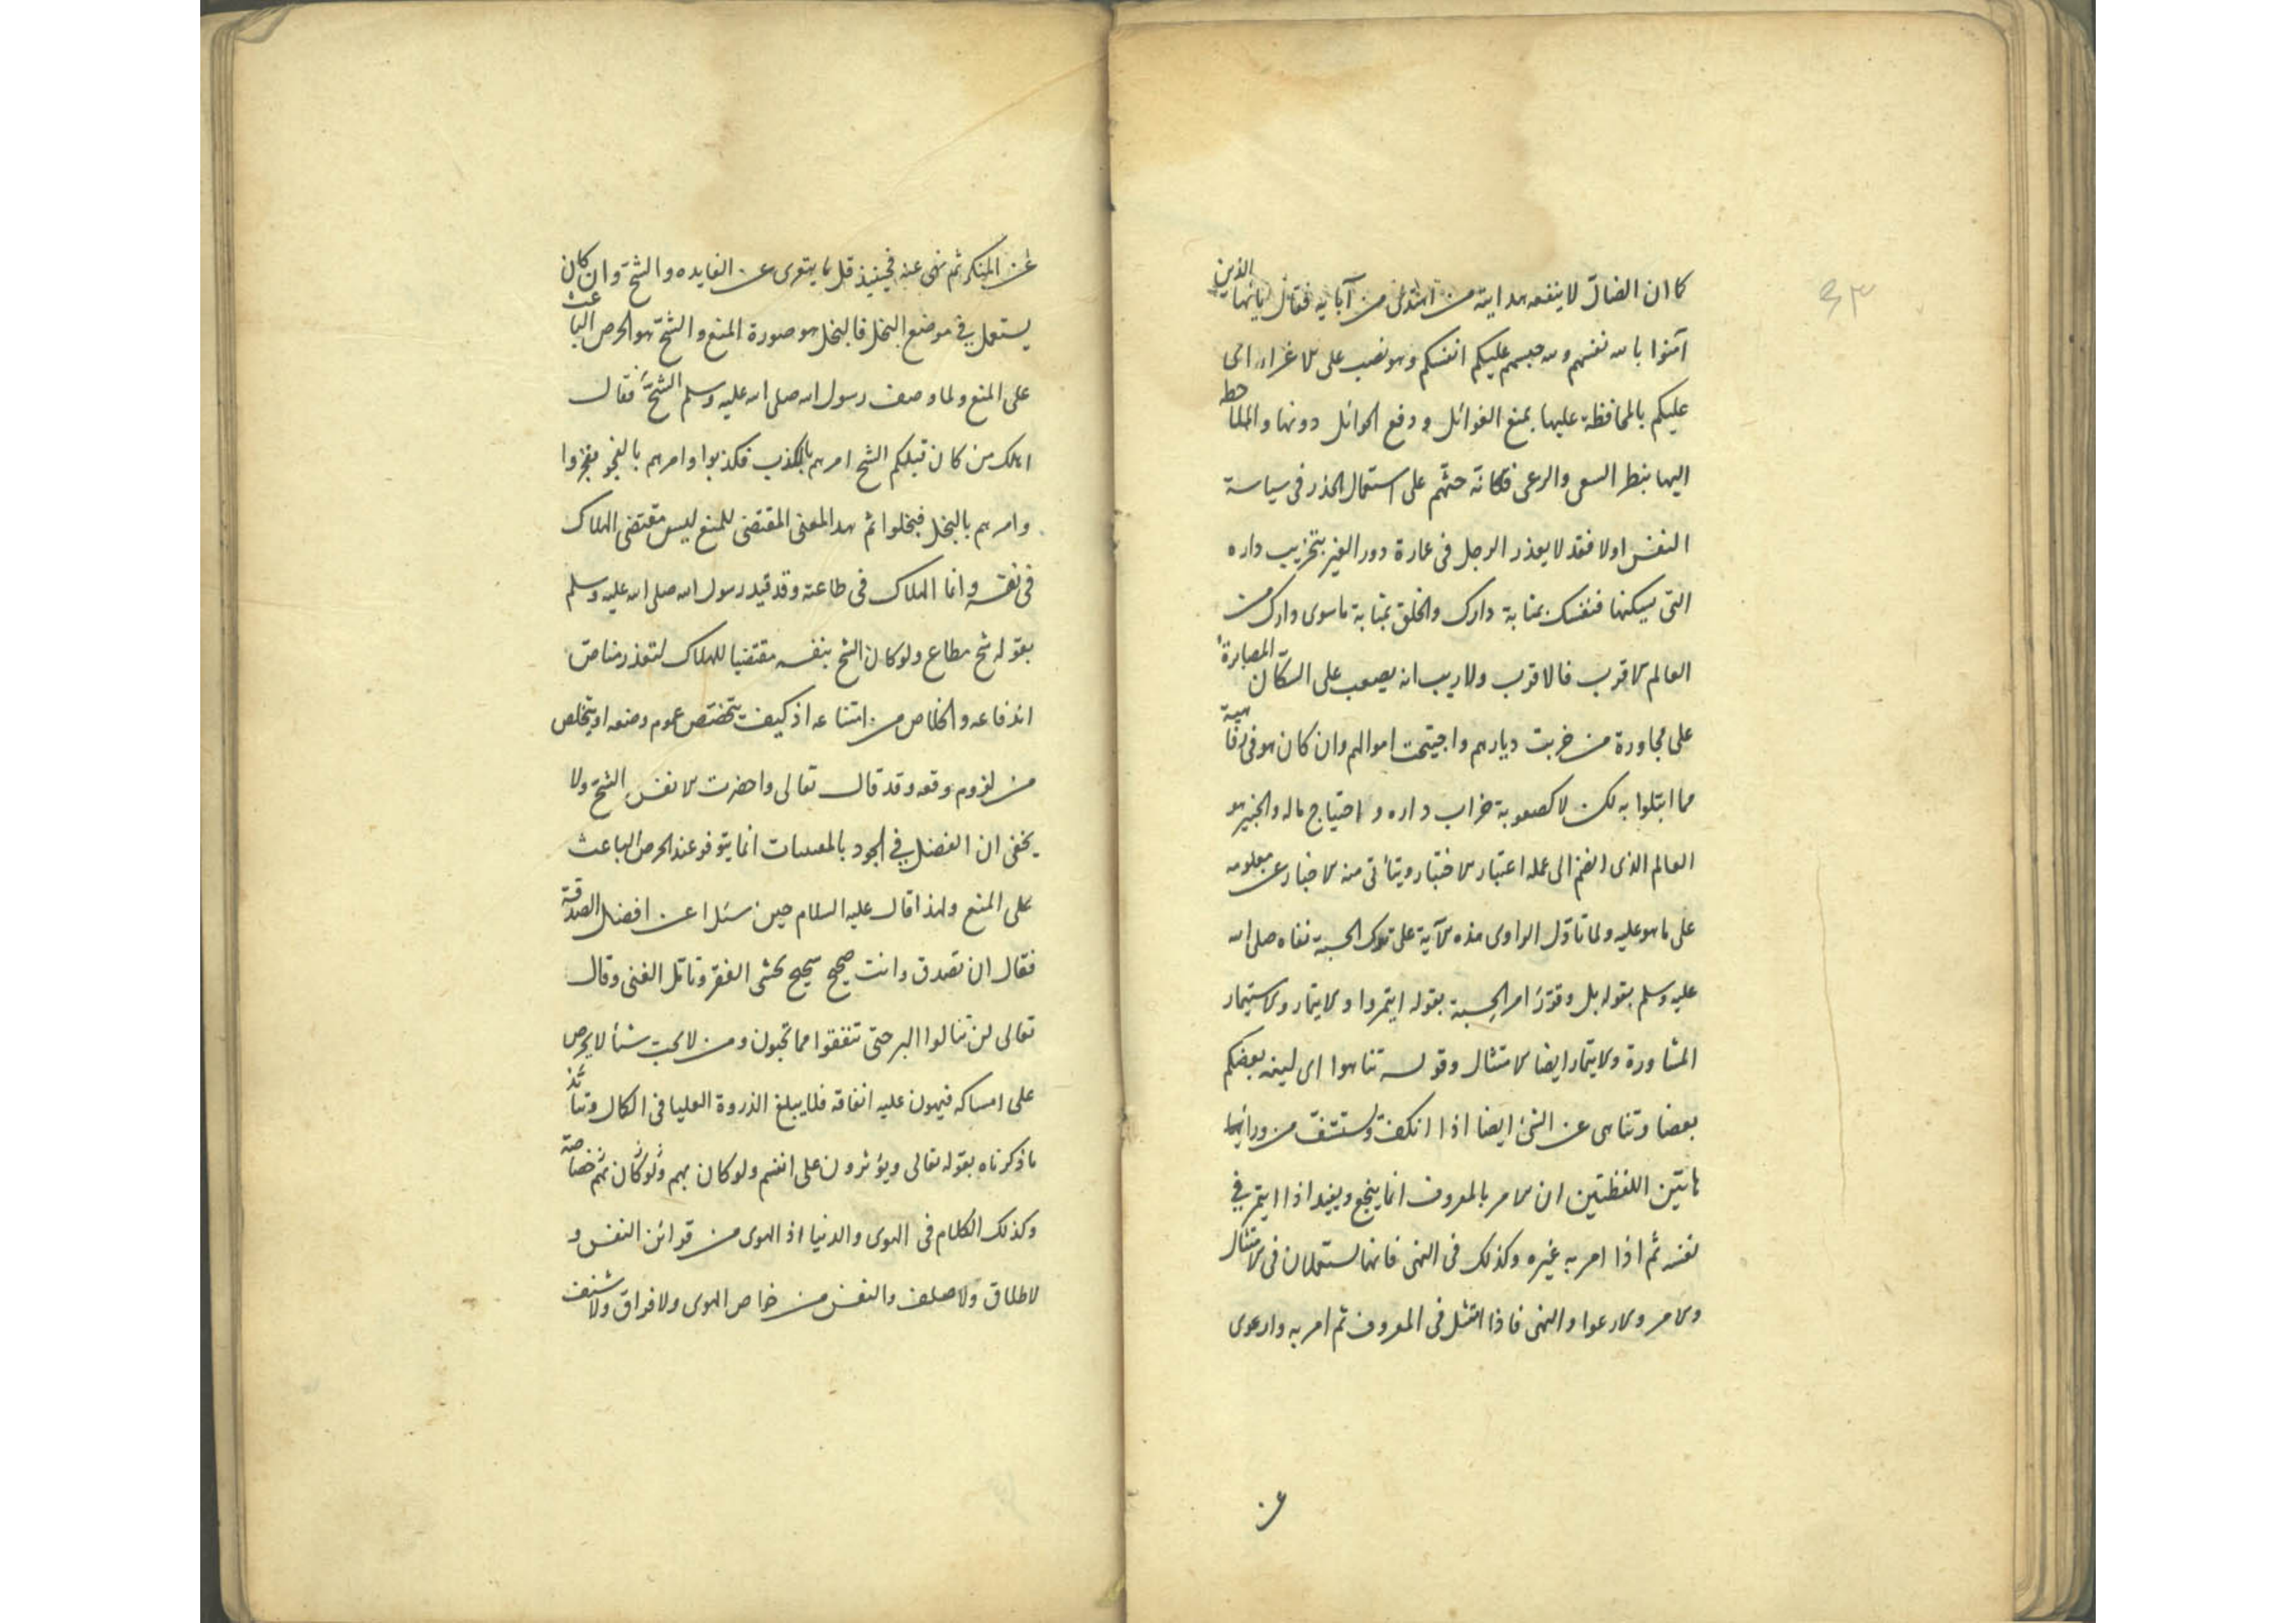 ٤٣
كما ان الضال لا ينفعه هداية من اهتدى من آبايه فقال يا ايها الذين
آمنوا بالله نفسهم وسه عليكم انفسكم وهو نصب على الاغراء اى
عليكم بالمحافظة عليها بمنع الغوائل ودفع الحوائل دونها والملاحظة
اليها بنظر السعى والرعى فكانه حثهم على استعمال الحذر فى سياسة
النفس اولا فقد لا يعذر الرجل فى عمارة دور الغير بتخريب داره
التى يسكنها فنفسك بمثابة دارك والخلق بمثابة ما سوى دارك من
العالم الاقرب فالاقرب ولا ريب انه يصعب على السكان المصابرة
على مجاورة من خربت ديارهم واجتيحت اموالهم وان كان هو فى رفاهية
مما ابتلوا به لكن لا كصعوبة خراب داره و احتياج ماله والخبير هو
العالم الذى انضم الى عمله اعتبار الاختبار ويتأتى منه الاخبار عن معلومه
على ما هو عليه ولما تاول الراوى هذه الآية على ترك الحسبة نفاه صلى الله
عليه وسلم بقوله بل وقرر امر الحسبة بقوله ايتمروا والايتمار والاستيمار
المشاورة والايتمار ايضا الامتثال وقوله تناهوا اى لينه بعضكم
بعضا وتناهى عن الشئ ايضا اذا انكف ويستشف من ورائها
هاتين اللفظتين ان الامر بالمعروف انما ينجع ويفيد اذا ايتمر في
نفسه ثم اذا امر به غيره وكذلك فى النهى فانهما يستعملان فى الامتثال
والامر والارعوا والنهى فاذا امتثل فى المعروف ثم امر به وارعوى
عن
عن المنكر ثم نهى عنه فحينيذ قل ما يعرى عن الفايده والشح وان كان
يستعمل في موضع البخل فالبخل هو صورة المنع والشح هو الحرص الباعث
على المنع ولما وصف رسول الله صلى الله عليه وسلم الشح فقال
اهلك من كان قبلكم الشح امرهم بالكذب فكذبوا وامرهم بالفجور ففجروا
وامرهم بالبخل فبخلوا ثم هذا المعنى المقتضى للمنع ليس مقتضى الهلاك
فى نفسه وانما الهلاك فى طاعته وقد قيد رسول الله صلى الله عليه وسلم
بقوله شح مطاع ولو كان الشح بنفسه مقتضيا للهلاك لتعذر مناص
اندفاعه والخلاص من امتناعه اذ كيف يتخصص عموم وضعه او يتخلص
من لزوم وقعه وقد قال تعالى واحضرت الانفس الشح ولا
يخفى ان الفضل في الجود بالمقتنيات انما يتوفر عند الحرص الباعث
على المنع ولهذا قال عليه السلام حين سئل عن افضل الصدقة
فقال ان تصدق وانت صحيح شحيح تخشى الفقر وتامل الغنى وقال
تعالى لن تنالوا البر حتى تنفقوا مما تحبون ومن لا يحب شيأ لا يحرص
على امساكه فيهون عليه انفاقه فلا يبلغ الذروة العليا فى الكمال
ما ذكرناه بقوله تعالى ويؤثرون على انفسهم ولو كان بهم خصاصة
وكذلك الكلام فى الهوى والدنيا اذ الهوى من قرائن النفس و
لا طلاق ولا صلف والنفس من خواص الهوى ولا فراق ولا شنف